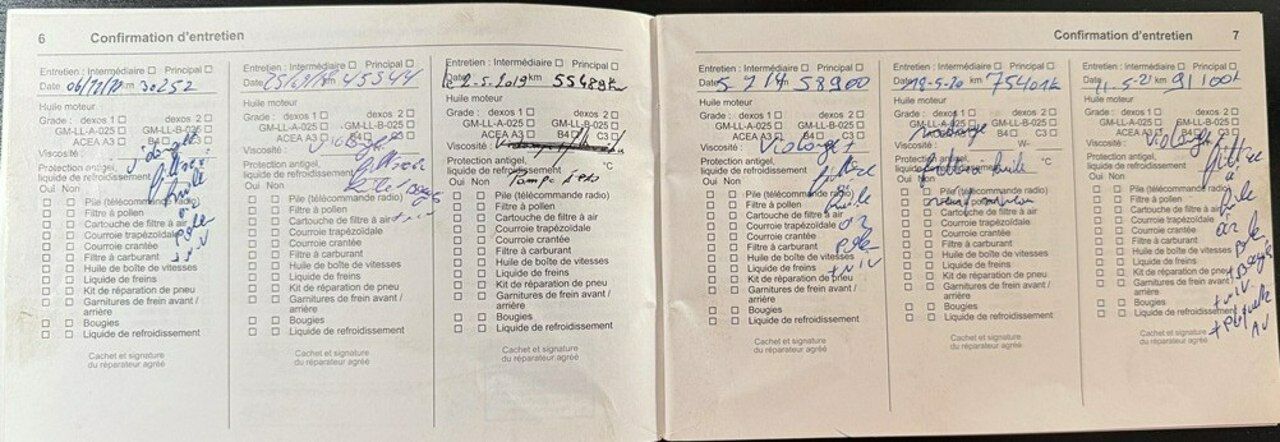 6 Confirmation d'entretien
Entretien : Intermédiaire Principal
Date 06/12/ km 30252
Huile moteur
Grade : dexos 1 dexos 2
GM-LL-A-025 GM-LL-B-025
ACEA A3 B4 C3
Viscosité :
Protection antigel,
liquide de refroidissement
Oui Non
Pile (télécommande radio)
Filtre à pollen
Cartouche de filtre à air
Courroie trapézoïdale
Courroie crantée
Filtre à carburant
Huile de boîte de vitesses
Liquide de freins
Kit de réparation de pneu
Garnitures de frein avant /
arrière
Bougies
Liquide de refroidissement
Cachet et signature
du réparateur agréé
Entretien : Intermédiaire Principal
Date km 45344
Huile moteur
Grade : dexos 1 dexos 2
GM-LL-A-025 GM-LL-B-025
ACEA A3 B4 C3
Viscosité :
Protection antigel,
liquide de refroidissement
Oui Non
Pile (télécommande radio)
Filtre à pollen
Cartouche de filtre à air
Courroie trapézoïdale
Courroie crantée
Filtre à carburant
Huile de boîte de vitesses
Liquide de freins
Kit de réparation de pneu
Garnitures de frein avant /
arrière
Bougies
Liquide de refroidissement
Cachet et signature
du réparateur agréé
Entretien : Intermédiaire Principal
Date 2-5-2019 km 55489
Huile moteur
Grade : dexos 1 dexos 2
GM-LL-A-025 GM-LL-B-025
ACEA A3 B4 C3
Viscosité :
Protection antigel,
liquide de refroidissement °C
Oui Non
Pile (télécommande radio)
Filtre à pollen
Cartouche de filtre à air
Courroie trapézoïdale
Courroie crantée
Filtre à carburant
Huile de boîte de vitesses
Liquide de freins
Kit de réparation de pneu
Garnitures de frein avant /
arrière
Bougies
Liquide de refroidissement
Cachet et signature
du réparateur agréé
Confirmation d'entretien 7
Entretien : Intermédiaire Principal
Date 58900
Huile moteur
Grade : dexos 1 dexos 2
GM-LL-A-025 GM-LL-B-025
ACEA A3 B4 C3
Viscosité : Vidange +
Protection antigel,
liquide de refroidissement
Oui Non
Pile (télécommande radio)
Filtre à pollen
Cartouche de filtre à air
Courroie trapézoïdale
Courroie crantée
Filtre à carburant
Huile de boîte de vitesses
Liquide de freins
Kit de réparation de pneu
Garnitures de frein avant /
arrière
Bougies
Liquide de refroidissement
Cachet et signature
du réparateur agréé
Entretien : Intermédiaire Principal
Date -5-20 km 75401
Huile moteur
Grade : dexos 1 dexos 2
GM-LL-A-025 GM-LL-B-025
B4 C3
Viscosité : W-
Protection antigel,
liquide de refroidissement °C
Oui Non
Pile (télécommande radio)
Filtre à pollen
Cartouche de filtre à air
Courroie trapézoïdale
Courroie crantée
Filtre à carburant
Huile de boîte de vitesses
Liquide de freins
Kit de réparation de pneu
Garnitures de frein avant /
arrière
Bougies
Liquide de refroidissement
Cachet et signature
du réparateur agréé
Entretien : Intermédiaire Principal
Date 11-5-21 km 91100
Huile moteur
Grade : dexos 1 dexos 2
GM-LL-A-025 GM-LL-B-025
ACEA A3 B4 C3
Viscosité : Vidange +
Protection antigel, filtre
liquide de refroidissement à
Oui Non
Pile (télécommande radio)
Filtre à pollen
Cartouche de filtre à air
Courroie trapézoïdale
Courroie crantée
Filtre à carburant
Huile de boîte de vitesses
Liquide de freins
Kit de réparation de pneu
Garnitures de frein avant /
arrière
Bougies
Liquide de refroidissement
Cachet et signature
du réparateur agréé